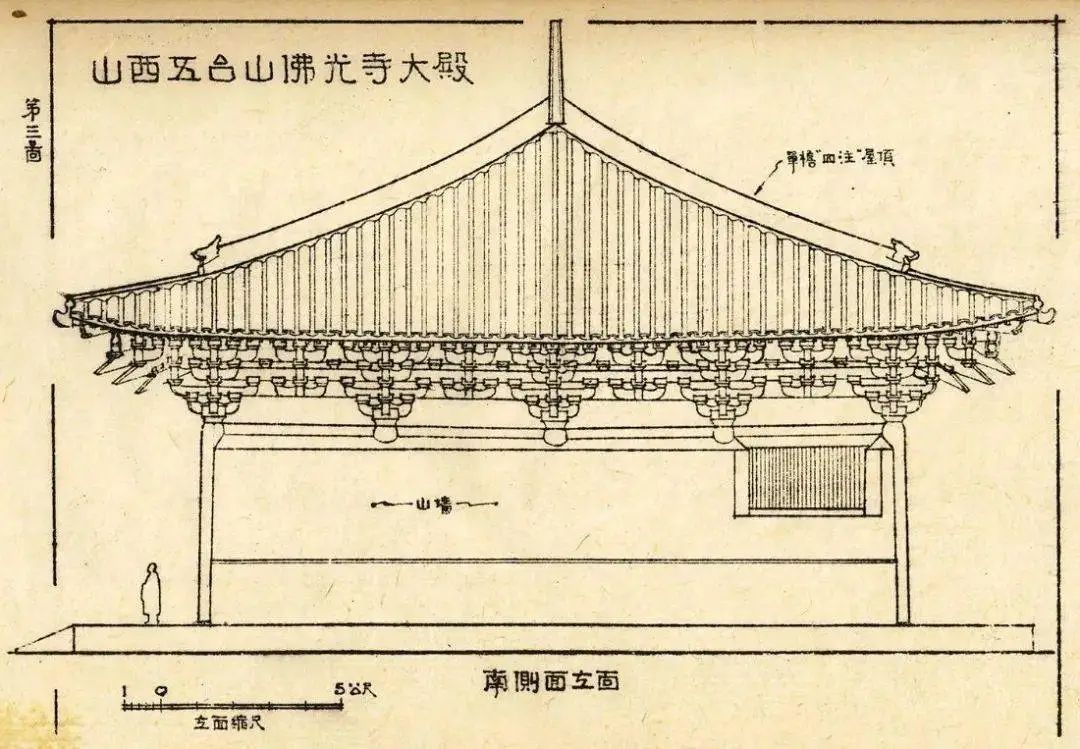 山西五台山佛光寺大殿
第三圖
單檐"四注"屋頂
山墻
南側面立面
1 0 5公尺
立面縮尺